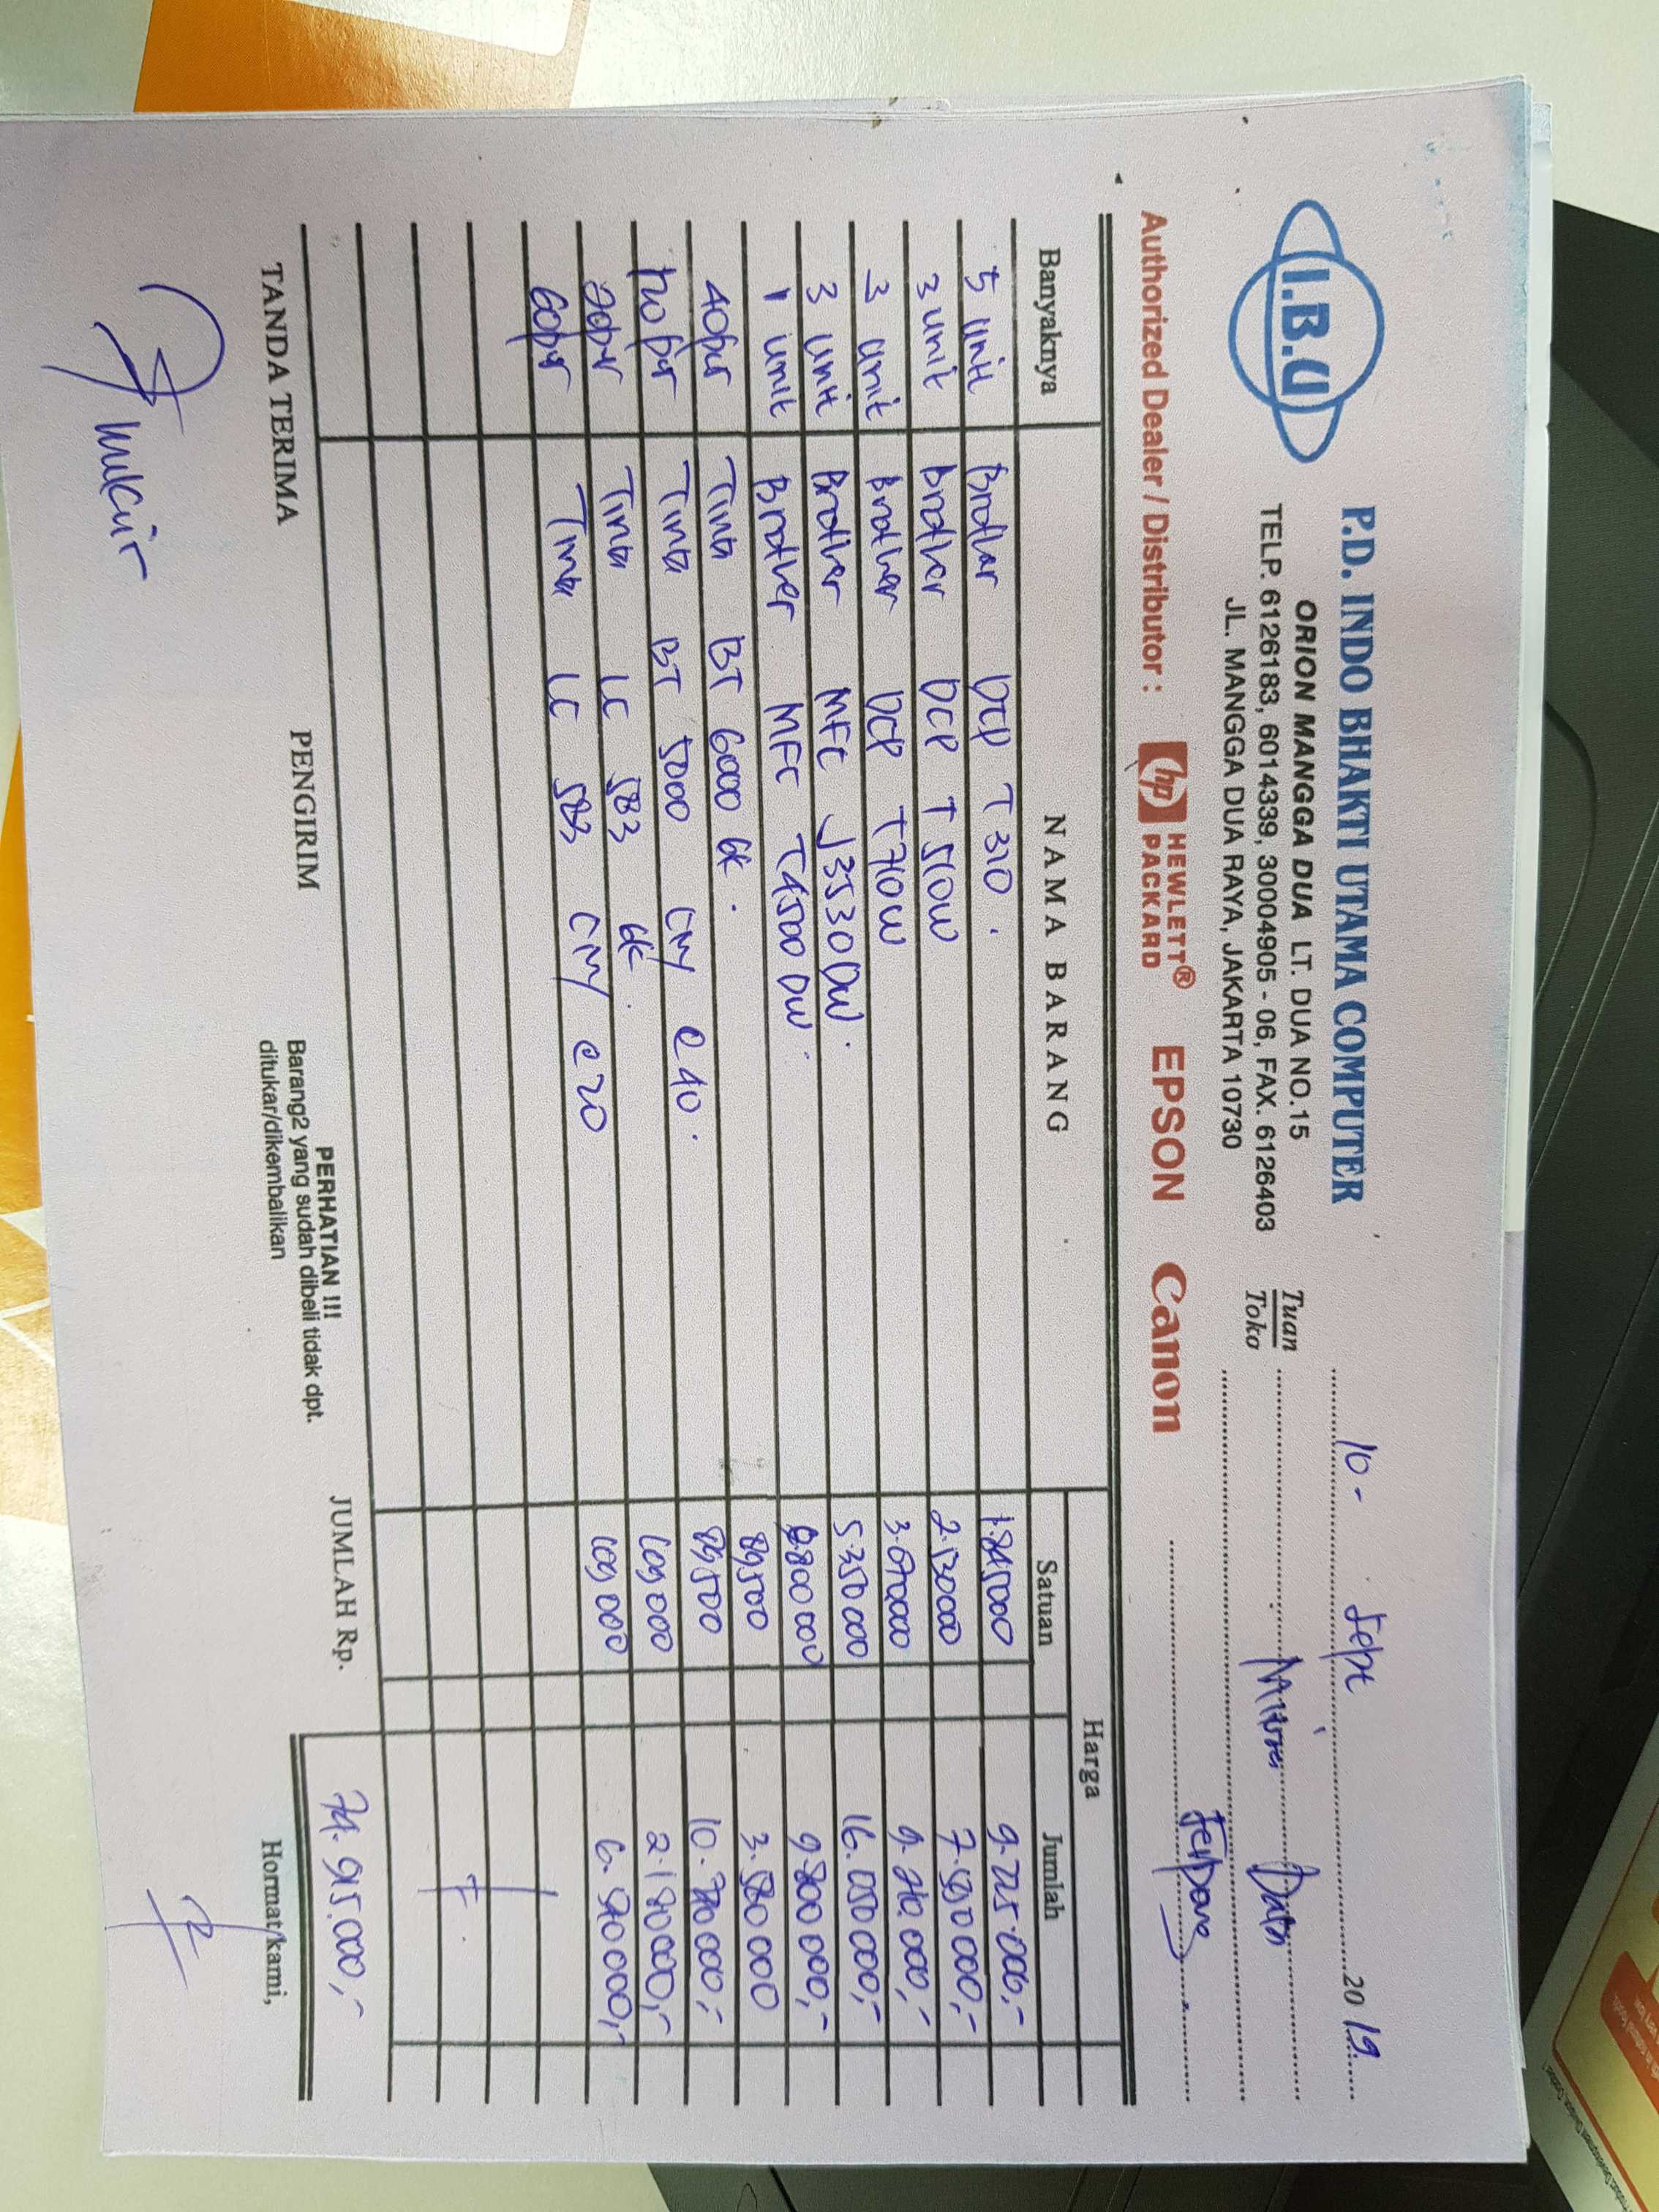 I.B.U
P.D. INDO BHAKTI UTAMA COMPUTER
ORION MANGGA DUA LT. DUA NO.15
TELP. 6126183, 6014339, 30004905 - 06, FAX. 6126403
JL. MANGGA DUA RAYA, JAKARTA 10730
10 - Sept 20 19
Tuan
Toko
Authorized Dealer / Distributor : hp HEWLETT® PACKARD EPSON Canon
Banyaknya NAMA BARANG Harga
Satuan Jumlah
5 unit Brother DCP T310. 1.845000 9.225.000,-
3 unit Brother DCP T510W 2.530000 7.590000,-
3 unit Brother DCP T710W 3.070000 9.210.000,-
3 unit Brother MFC J3530DW. 5.350000 16.050000,-
1 unit Brother MFC T4500DW. 9.800000 9.800000,-
40pcs Tinta BT 6000 BK. 89,500 3.580000
120pcs Tinta BT 5000 CMY @40. 89,500 10.740000,-
20pcs Tinta LC 583 BK. 109,000 2.180000,-
60pcs Tinta LC 583 CMY @20 109,000 6.540000,-
TANDA TERIMA PENGIRIM
PERHATIAN !!!
Barang2 yang sudah dibeli tidak dpt.
ditukar/dikembalikan
JUMLAH Rp. 74.915.000,-
Hormat kami,